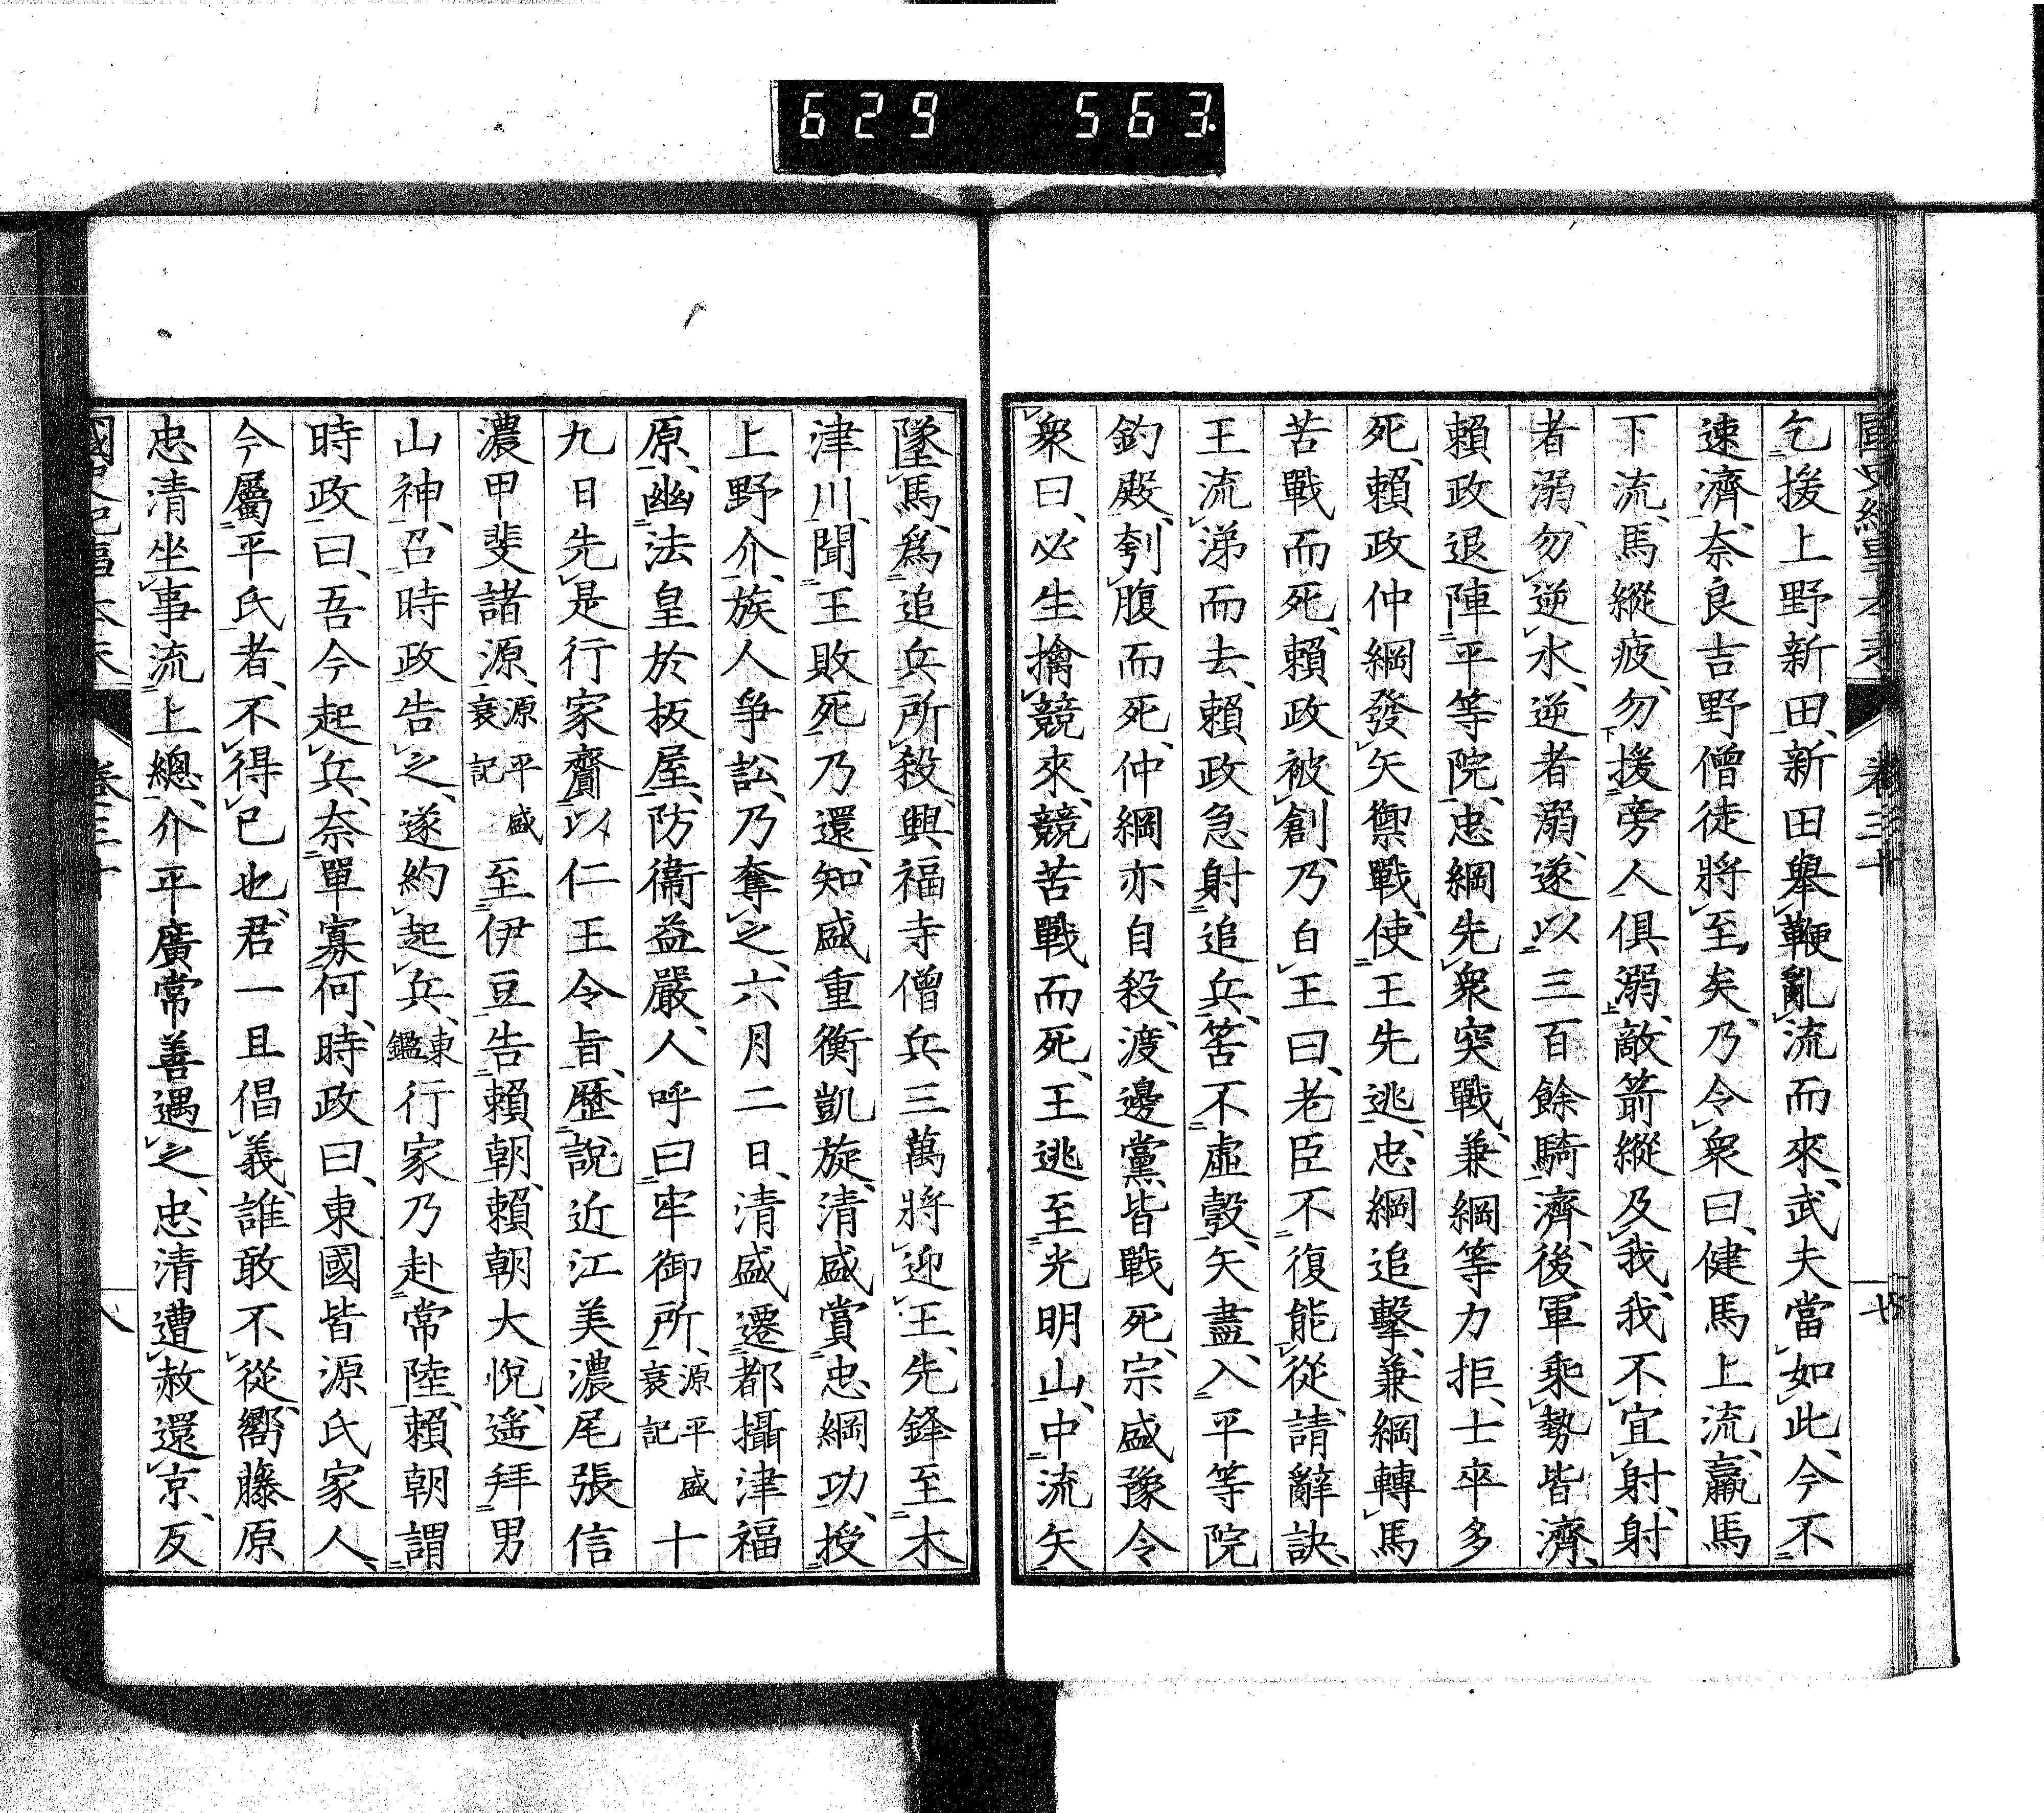 629 563
國史紀事本末 卷三十 十七
乞援上野新田、新田舉鞭亂流而來、武夫當如此、今不
速濟、奈良吉野僧徒將至矣、乃令衆曰、健馬上流、羸馬
下流、馬縱疲、勿援旁人俱溺、敵箭縱及我、我不宜射、射
者溺、勿逆水、逆者溺、遂以三百餘騎濟、後軍乘勢皆濟、
賴政退陣平等院、忠綱先衆突戰、兼綱等力拒、士卒多
死、賴政仲綱發矢禦戰、使王先逃、忠綱追擊、兼綱轉馬
苦戰而死、賴政被創、乃白王曰、老臣不復能從、請辭訣、
王流涕而去、賴政急射追兵、筈不虛彀、矢盡、入平等院
釣殿、刳腹而死、仲綱亦自殺、渡邊黨皆戰死、宗盛豫令
衆曰、必生擒競來、競苦戰而死、王逃至光明山、中流矢
墜馬、爲追兵所殺、興福寺僧兵三萬將迎王、先鋒至木
津川、聞王敗死乃還、知盛重衡凱旋、清盛賞忠綱功、授
上野介、族人爭訟、乃奪之、六月二日、清盛遷都攝津福
原、幽法皇於板屋、防衞益嚴、人呼曰牢御所、源平盛衰記 十
九日先是行家齎以仁王令旨、歷說近江美濃尾張信
濃甲斐諸源、源平盛衰記 至伊豆告賴朝、賴朝大悅、遙拜男
山神、召時政告之、遂約起兵、東鑑 行家乃赴常陸、賴朝謂
時政曰、吾今起兵、奈單寡何、時政曰、東國皆源氏家人、
今屬平氏者、不得已也、君一旦倡義、誰敢不從、嚮藤原
忠清坐事流上總、介平廣常善遇之、忠清遭赦還京、反
國史紀事本末 卷三十 八